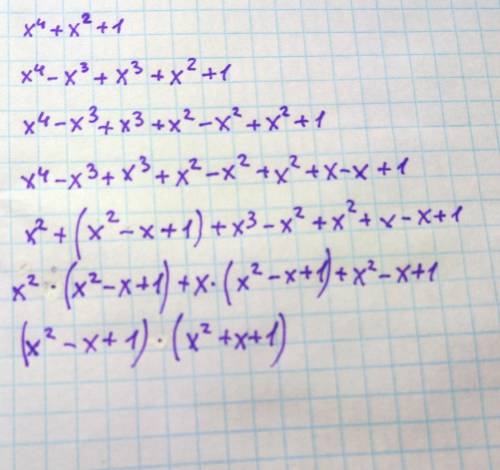 x⁴ + x² + 1
x⁴ - x³ + x³ + x² + 1
x⁴ - x³ + x³ + x² - x² + x² + 1
x⁴ - x³ + x³ + x² - x² + x² + x - x + 1
x² + (x² - x + 1) + x³ - x² + x² + x - x + 1
x² · (x² - x + 1) + x · (x² - x + 1) + x² - x + 1
(x² - x + 1) · (x² + x + 1)